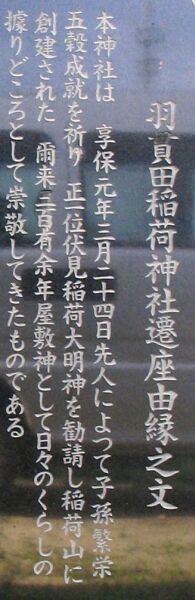 羽貫田稲荷神社遷座由縁之文
本神社は 享保元年三月二十四日先人によつて子孫繁栄
五穀成就を祈り 正一位伏見稲荷大明神を勧請し稲荷山に
創建された 爾来三百有余年屋敷神として日々のくらしの
據りどころとして崇敬してきたものである